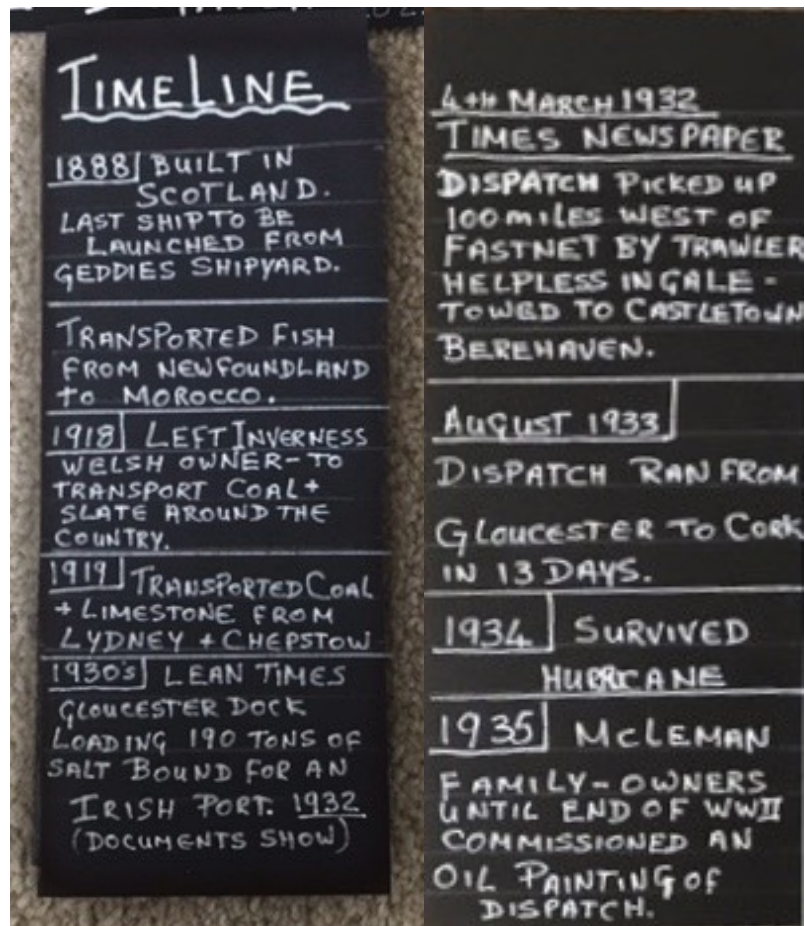 TIMELINE
1888 BUILT IN
SCOTLAND.
LAST SHIP TO BE
LAUNCHED FROM
GEDDIES SHIPYARD.
TRANSPORTED FISH
FROM NEWFOUNDLAND
TO MOROCCO.
1918 LEFT INVERNESS
WELSH OWNER- TO
TRANSPORT COAL +
SLATE AROUND THE
COUNTRY.
1919 TRANSPORTED COAL
+ LIMESTONE FROM
LYDNEY + CHEPSTOW
1930's LEAN TIMES
GLOUCESTER DOCK
LOADING 190 TONS OF
SALT BOUND FOR AN
IRISH PORT. 1932
(DOCUMENTS SHOW)
4TH MARCH 1932
TIMES NEWSPAPER
DISPATCH PICKED UP
100 MILES WEST OF
FASTNET BY TRAWLER
HELPLESS IN GALE -
TOWED TO CASTLETOWN
BEREHAVEN.
AUGUST 1933
DISPATCH RAN FROM
GLOUCESTER TO CORK
IN 13 DAYS.
1934 SURVIVED
HURRICANE
1935 McLEMAN
FAMILY - OWNERS
UNTIL END OF WWII
COMMISSIONED AN
OIL PAINTING OF
DISPATCH.